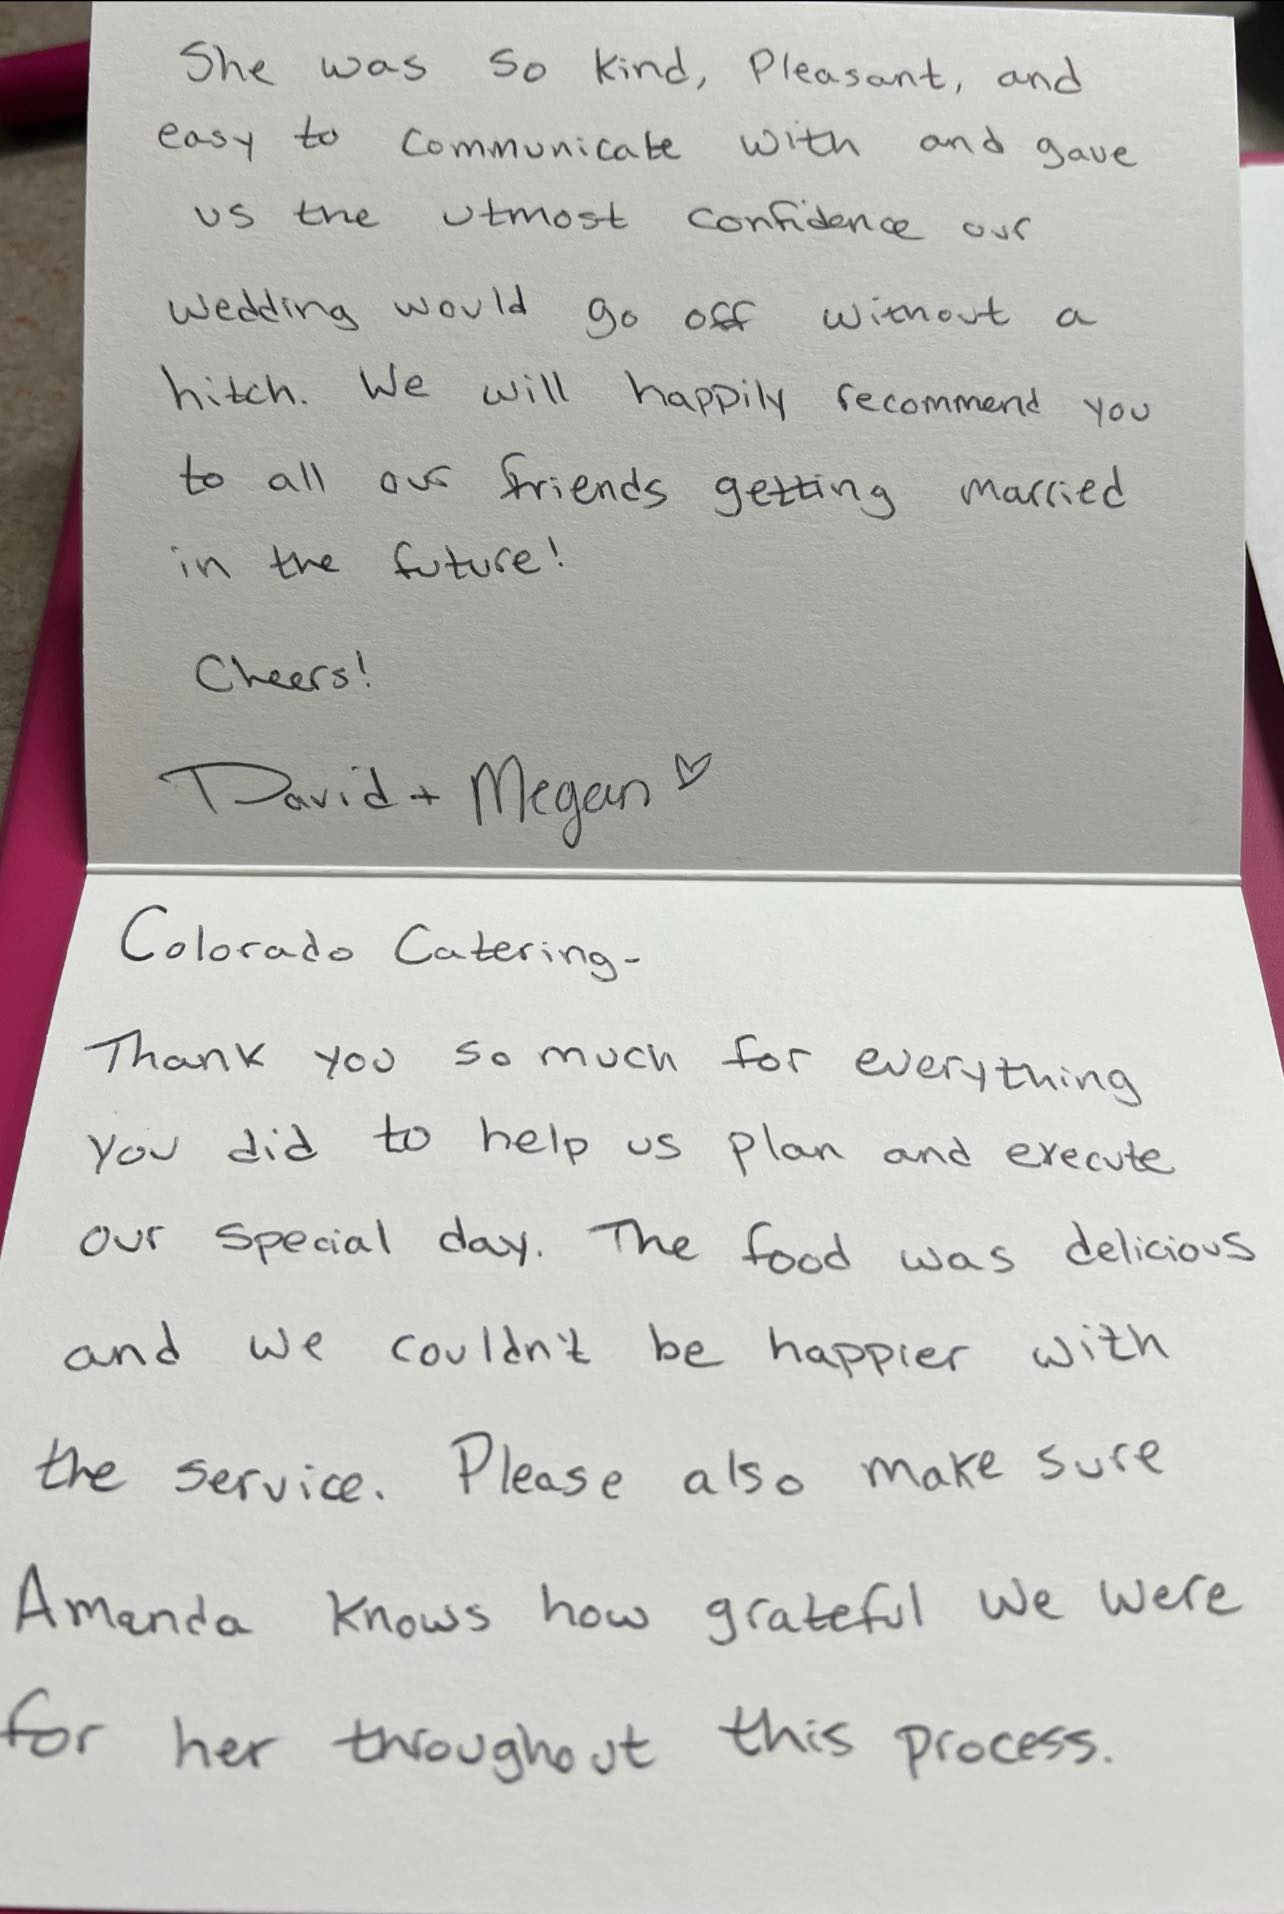 Colorado Catering-
Thank you so much for everything
you did to help us plan and execute
our special day. The food was delicious
and we couldn't be happier with
the service. Please also make sure
Amanda knows how grateful we were
for her throughout this process.
She was so kind, Pleasant, and
easy to communicate with and gave
us the utmost confidence our
wedding would go off without a
hitch. We will happily recommend you
to all our friends getting married
in the future!
Cheers!
David + Megan ♡